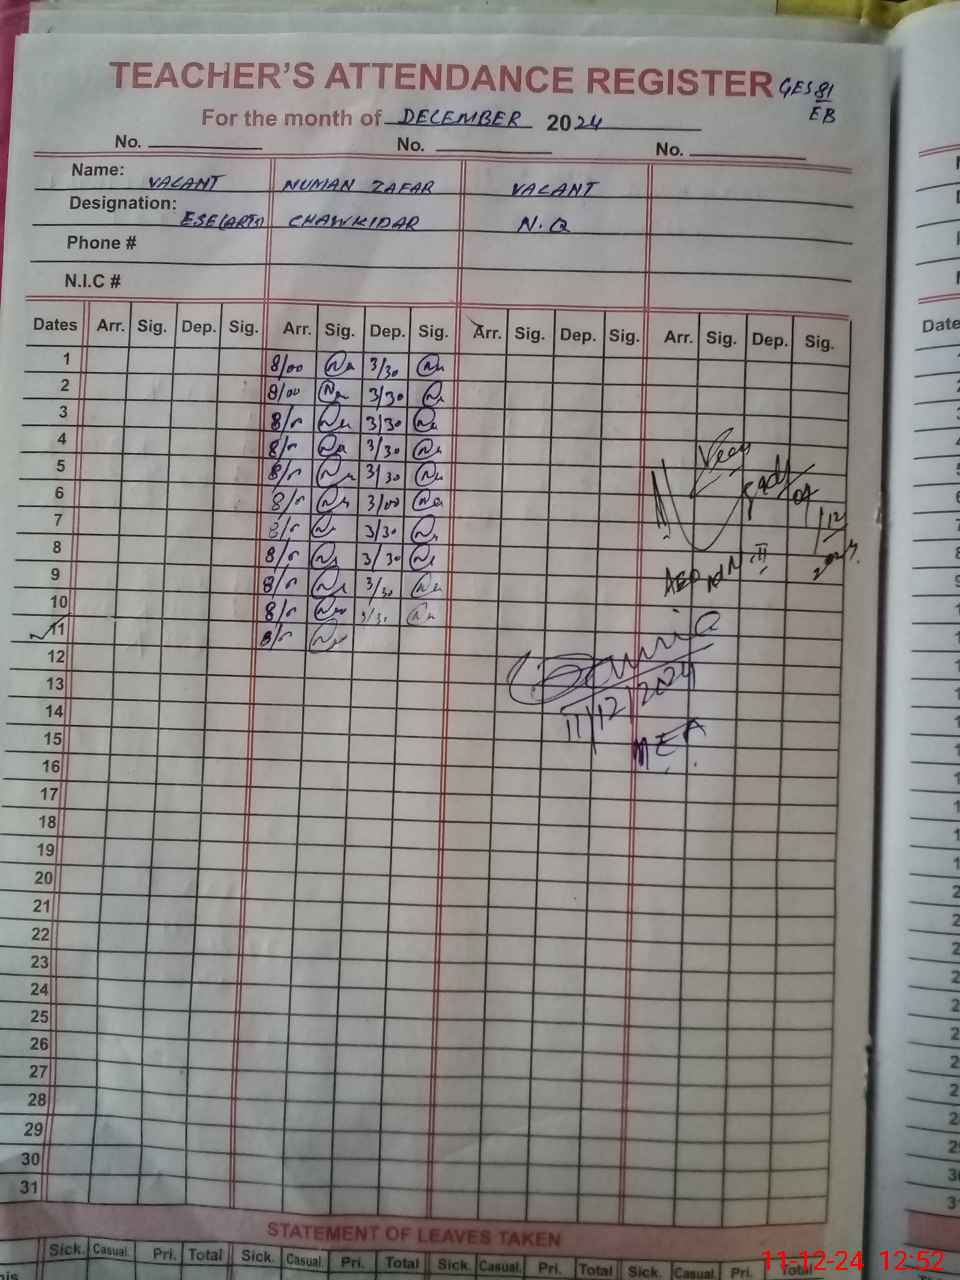 TEACHER'S ATTENDANCE REGISTER GES 81
EB
For the month of DECEMBER 2024
No. No. No.
Name: VACANT NUMAN ZAFAR VACANT
Designation: ESE(ARTS) CHAWKIDAR N.Q
Phone #
N.I.C #
Dates Arr. Sig. Dep. Sig. Arr. Sig. Dep. Sig. Arr. Sig. Dep. Sig. Arr. Sig. Dep. Sig.
Date
1 8/00 3/30
2 8/00 3/30
3 8/ 3/30
4 8/ 3/30
5 8/ 3/30
6 8/ 3/00
7 8/ 3/30
8 8/ 3/30
9 8/ 3/30
10 8/ 3/30
11 8/
12
13
14
15
16
17
18
19
20
21
22
23
24
25
26
27
28
29
30
31
04/12/2024
AEO II
11/12/2024
MEA
STATEMENT OF LEAVES TAKEN
Sick. Casual. Pri. Total Sick. Casual. Pri. Total Sick. Casual. Pri. Total Sick. Casual. Pri. Total
11-12-24 12:52